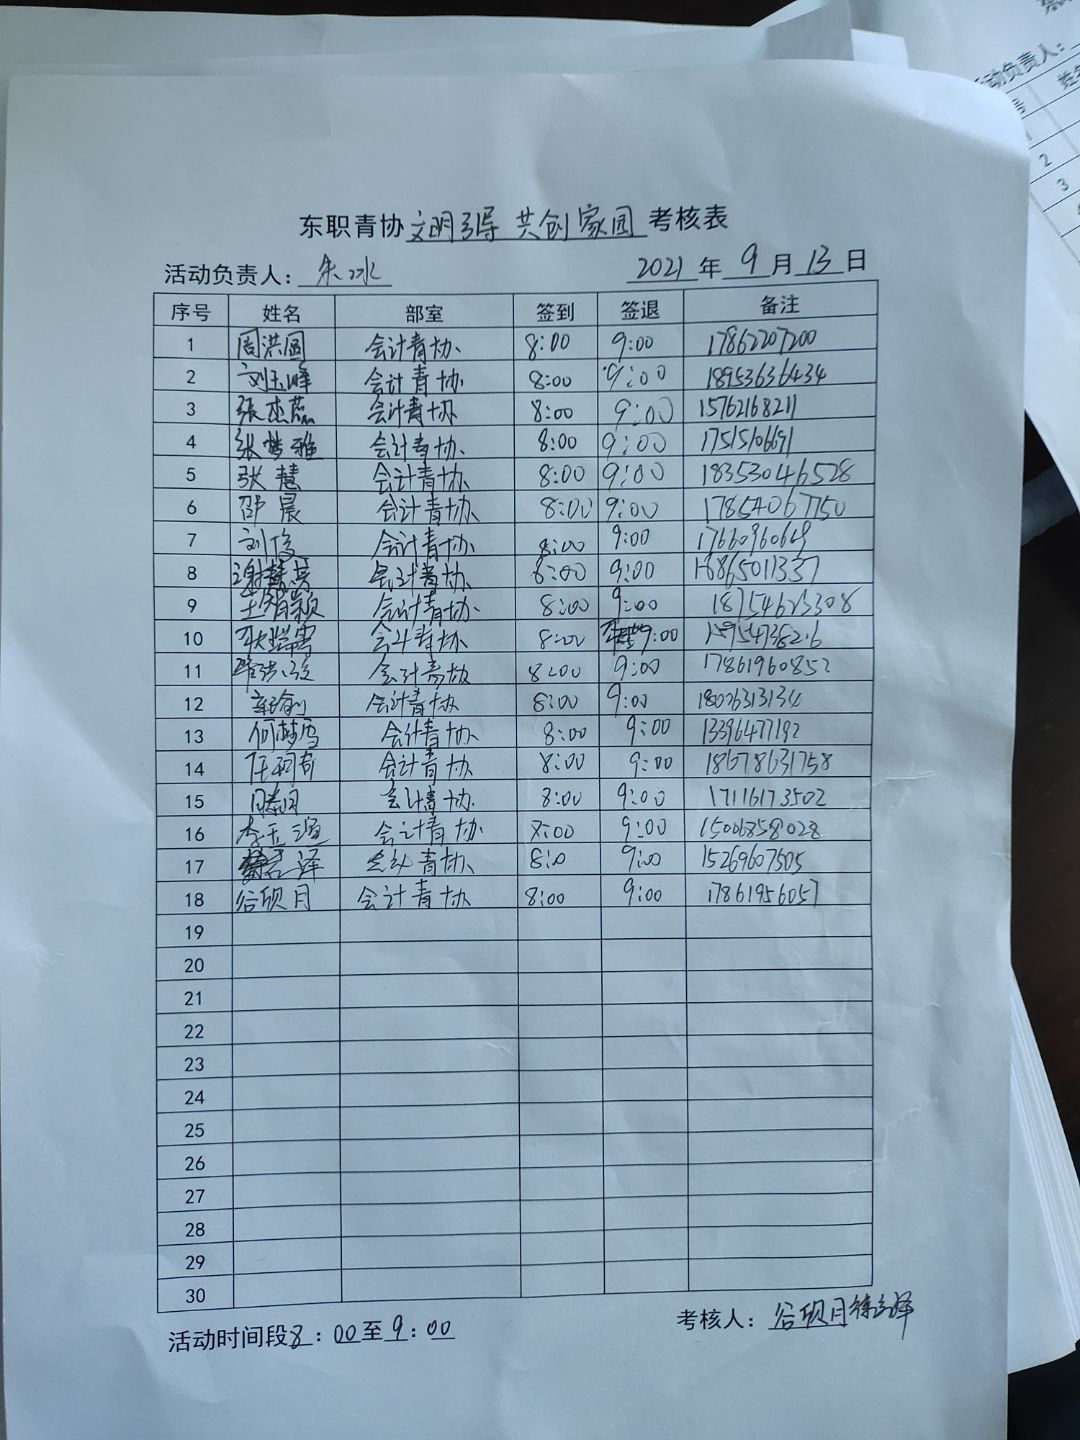 东职青协文明引导 共创家园考核表
活动负责人：朱冰 2021年9月13日
序号 姓名 部室 签到 签退 备注
1 周洪圆 会计青协 8:00 9:00 17862207200
2 刘玉峰 会计青协 8:00 9:00 18953636434
3 张杰蕊 会计青协 8:00 9:00 15762168211
4 张梦雅 会计青协 8:00 9:00 17515106691
5 张慧 会计青协 8:00 9:00 18353046528
6 邵晨 会计青协 8:00 9:00 17854067750
7 刘俊 会计青协 8:00 9:00 17660960649
8 会计青协 8:00 9:00 18865011337
9 会计青协 8:00 9:00 18754623308
10 会计青协 8:00 9:00 15954738216
11 会计青协 8:00 9:00 17861960852
12 会计青协 8:00 9:00 18006313134
13 何梦雪 会计青协 8:00 9:00 13396477192
14 任珂奇 会计青协 8:00 9:00 18678631758
15 会计青协 8:00 9:00 17116173502
16 会计青协 8:00 9:00 15001858028
17 泽 会计青协 8:0 9:00 15269607505
18 谷硕月 会计青协 8:00 9:00 17861956057
19
20
21
22
23
24
25
26
27
28
29
30
活动时间段8：00至9：00 考核人：谷硕月 徐言泽
活动负责人：
号
2
3